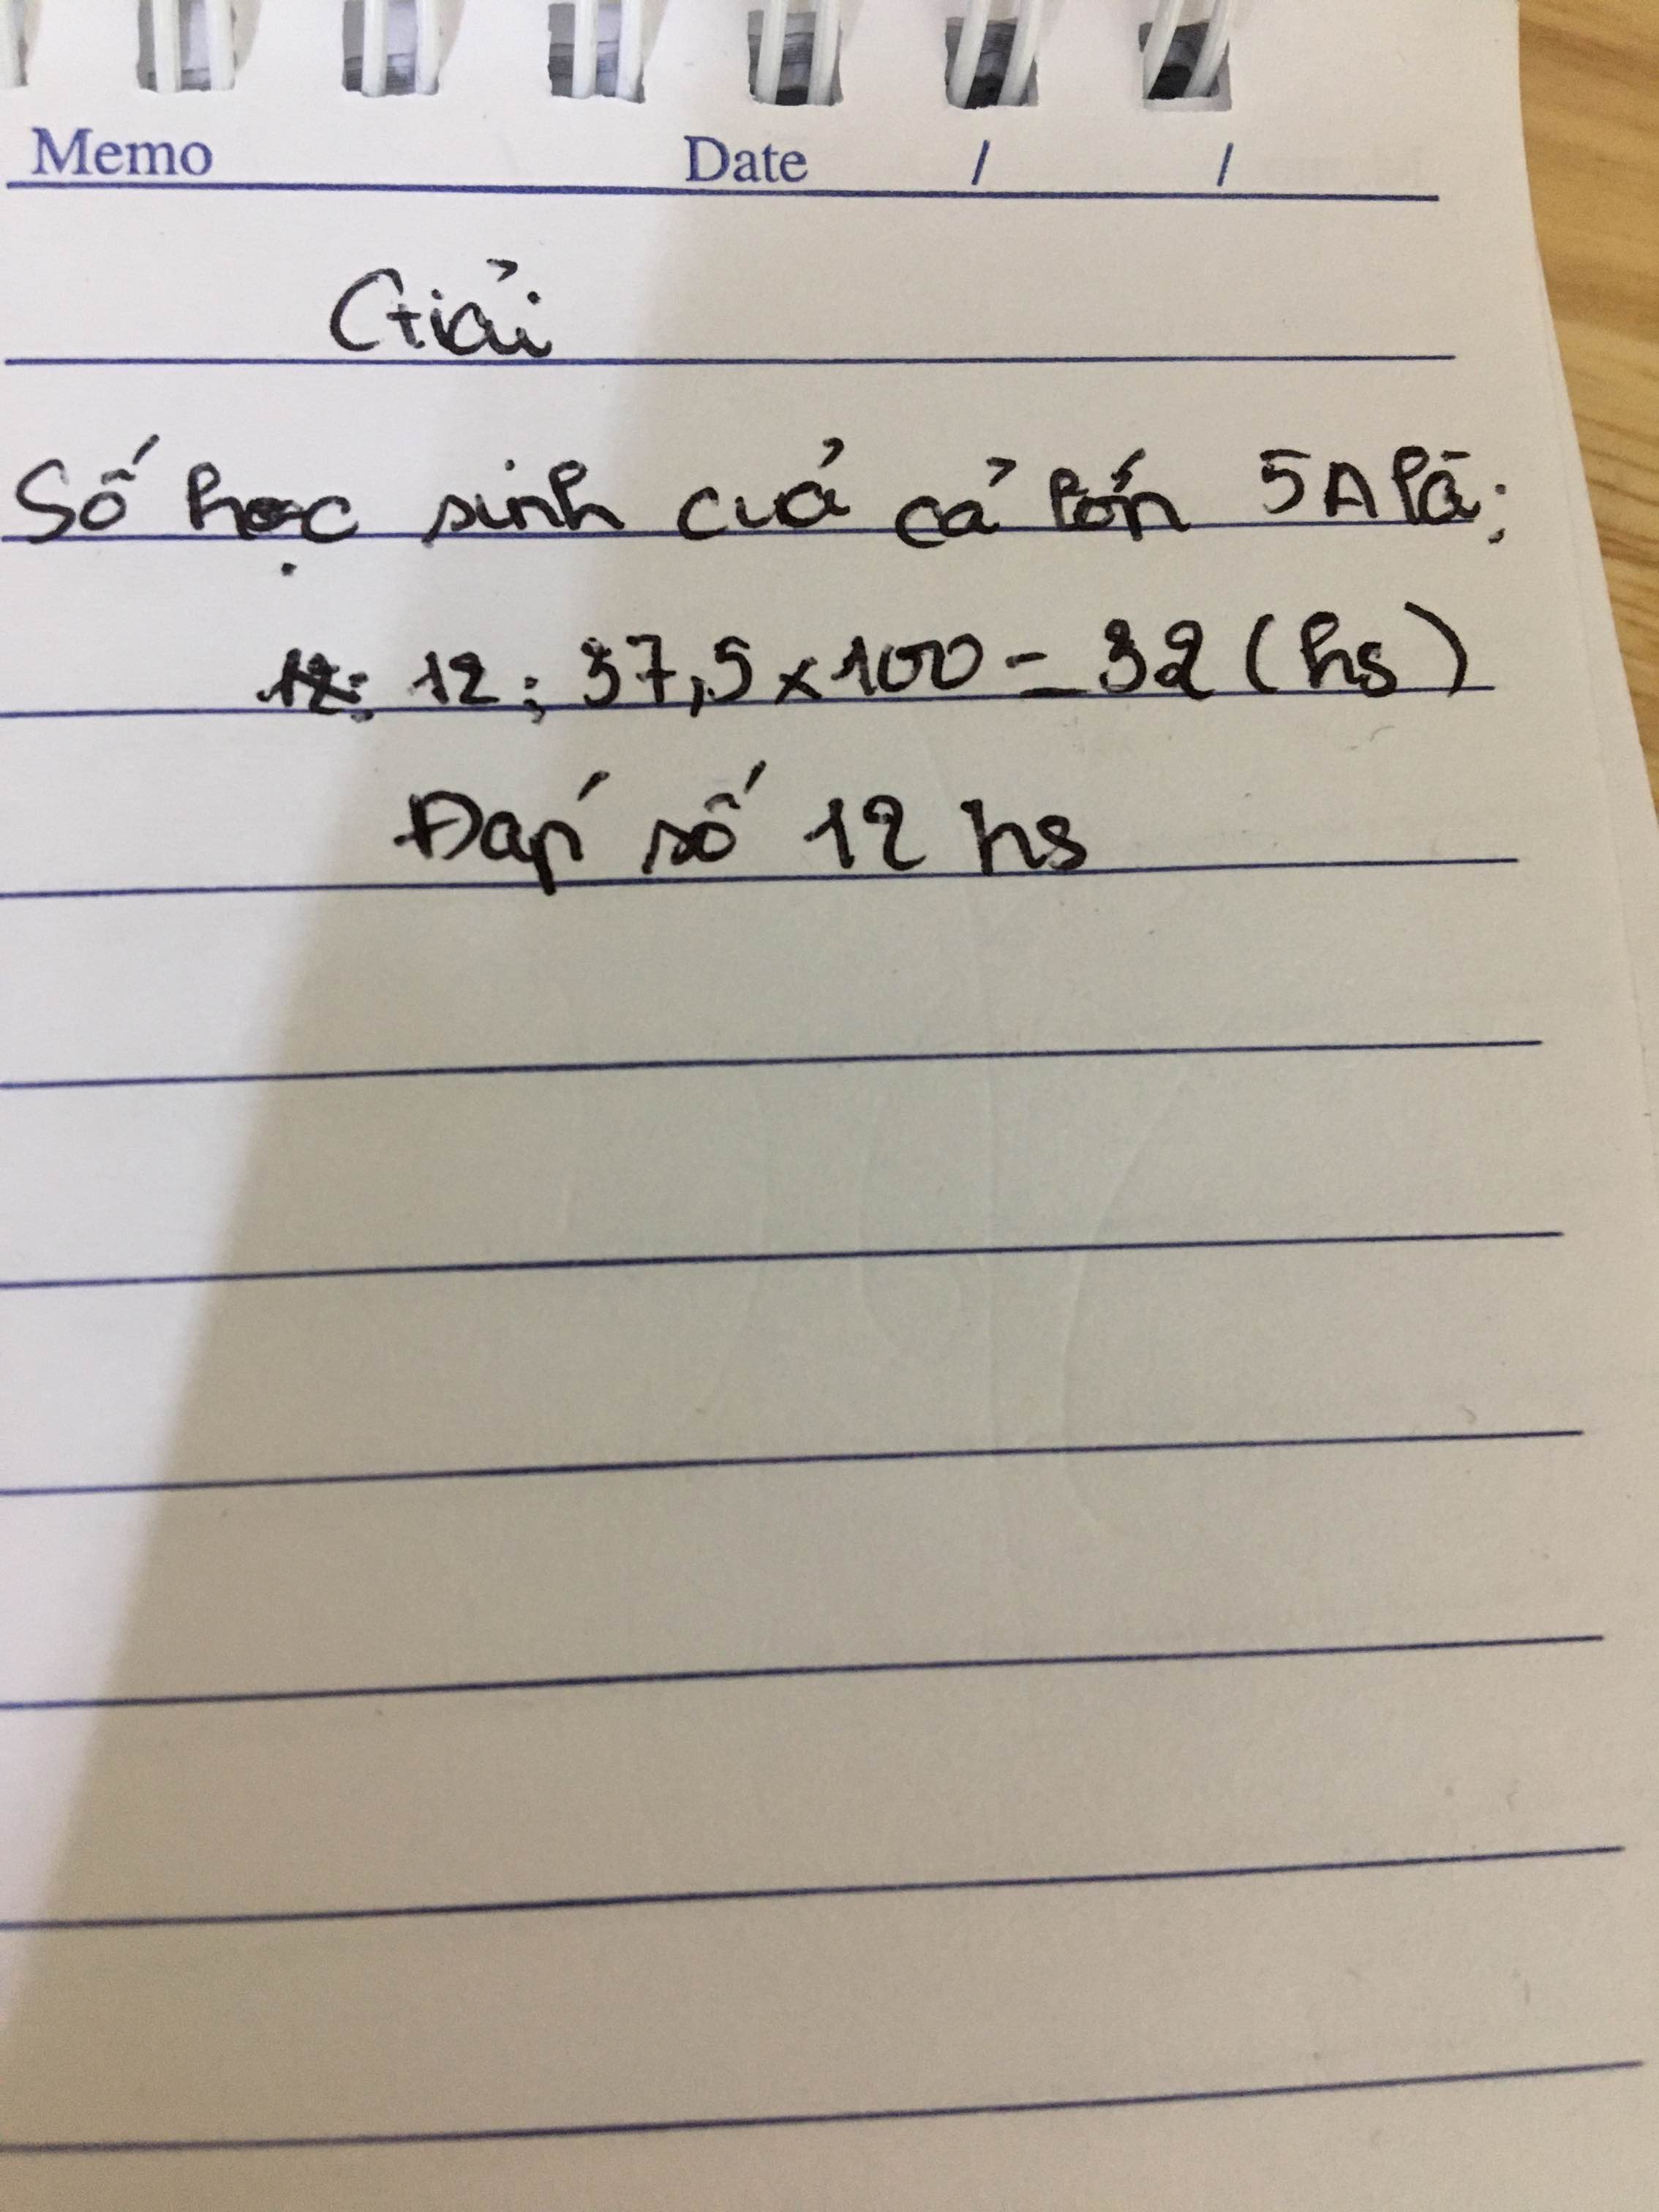 Memo Date / /
Giải
Số học sinh cuả cả lớn 5A là:
12: 12 : 37,5 x 100 = 32 (hs)
Đaṕ số 12 hs